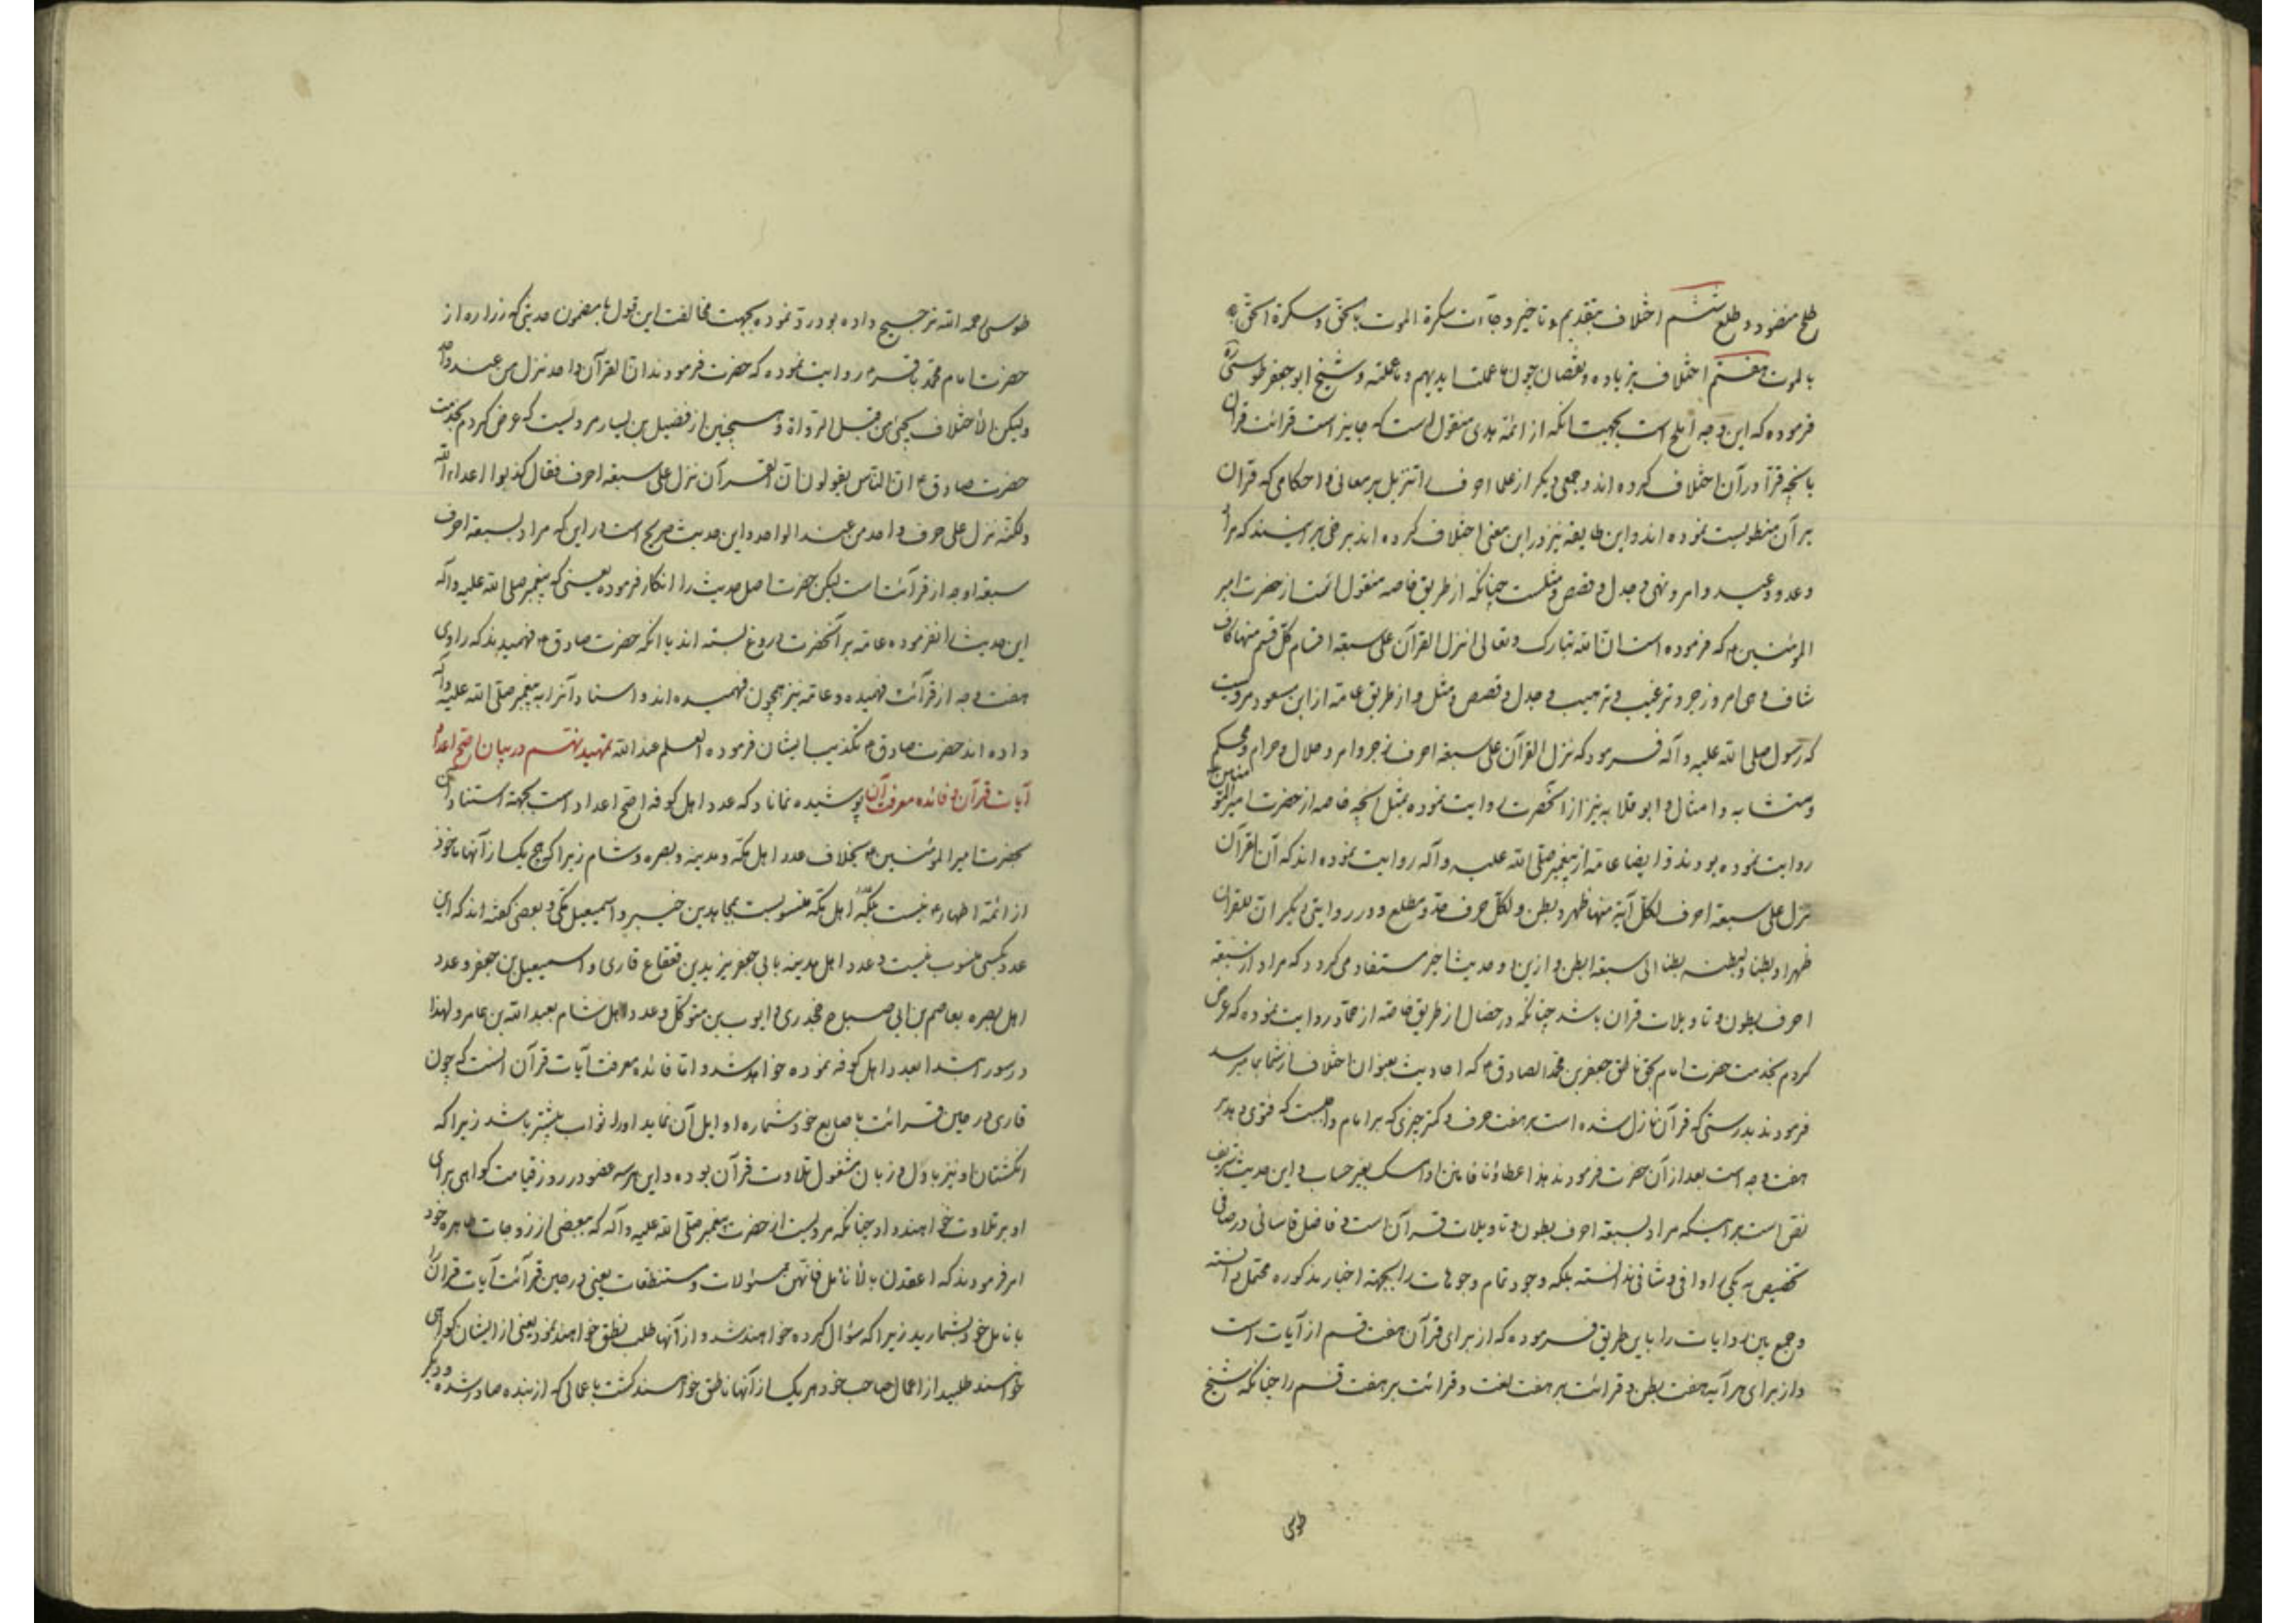 طلح منضود و طلع ششم اختلاف بتقدیم و تاخیر وجآءت سکرة الموت بالحق و سکرة الحق
بالموت هفتم اختلاف بزیاده و نقصان چون ما عملت ایدیهم و ما عملته و شیخ ابو جعفر طوسی ره
فرموده که این وجه املح است بجهت انکه از ائمه هدی منقول است که جایز است قرائت قران
بانچه قرآ در آن اختلاف کرده اند و جمعی دیکر از علما احرف را تنزیل بر معانی و احکامی که قران
بر آن منطویست نموده اند و این طایفه نیز در این معنی اختلاف کرده اند برخی بر اینند که مراد
وعد و وعید و امر و نهی و جدل و قصص و مثلست چنانکه از طریق خاصه منقول است از حضرت امیر
المؤمنین ع که فرموده است ان الله تبارک و تعالی انزل القرآن علی سبعة اقسام کل قسم منها کاف
شاف و هی امر و زجر و ترغیب و ترهیب و جدل و قصص و مثل و از طریق عامه از ابن مسعود مرویست
که رسول صلی الله علیه و آله فرمود که نزل القرآن علی سبعة احرف زجر و امر و حلال و حرام و محکم
و متشابه و امثال و ابو قلابه نیز از آنحضرت روایت نموده بمثل آنچه خاصه از حضرت امیر المؤمنین ع
روایت نموده بودند و ایضا عامه از پیغمبر صلی الله علیه و آله روایت نموده اند که ان القرآن
نزل علی سبعة احرف لکل آیة منها ظهر و بطن و لکل حرف حد و مطلع و در روایتی دیکر ان للقران
ظهرا و بطنا و لبطنه بطنا الی سبعة ابطن و ازین دو حدیث اخیر مستفاد می کردد که مراد از سبعة
احرف بطون و تاویلات قران باشد چنانکه در خصال از طریق خاصه از حماد روایت نموده که عرض
کردم بخدمت حضرت امام بحق ناطق جعفر بن محمد الصادق ع که احادیث بعنوان اختلاف از شما بما میرسد
فرمودند بدرستی که قرآن نازل شده است بر هفت حرف و کمتر چیزی که بر امام واجبست که فتوی دهد بر
هفت وجه است بعد از آن حضرت فرمودند هذا عطاؤنا فامنن او امسک بغیر حساب و این حدیث شریف
نص است بر اینکه مراد بسبعة احرف بطون و تاویلات قرآن است و فاضل قاسانی در صافی
تخصیص به یکی را وافی و شافی ندانسته بلکه وجود تمام وجوهات را بجهة اخبار مذکوره محتمل دانسته
و جمع بین روایات را باین طریق فرموده که از برای قرآن هفت قسم از آیات است
و از برای هر آیه هفت بطن و قرائت بر هفت لغت و قرائت بر هفت قسم را چنانکه شیخ
طوسی
طوسی رحمه الله ترجیح داده بود رد نموده بجهت مخالفت این قول با مضمون حدیثی که زراره از
حضرت امام محمد باقر ع روایت نموده که حضرت فرمودند ان القرآن واحد نزل من عند واحد
ولکن الاختلاف یجئ من قبل الرواة و همچنین از فضیل بن یسار مرویست که عرض کردم بخدمت
حضرت صادق ع ان الناس یقولون ان القرآن نزل علی سبعة احرف فقال کذبوا اعداء الله
ولکنه نزل علی حرف واحد من عند الواحد و این حدیث صریح است در این که مراد بسبعة احرف
سبعة اوجه از قرآئت است لیکن حضرت اصل حدیث را انکار فرموده یعنی که پیغمبر صلی الله علیه و آله
این حدیث را نفرموده عامه بر آنحضرت دروغ بسته اند یا انکه حضرت صادق ع فهمیدند که راوی
هفت وجه از قرآئت فهمیده و عامه نیز همچون فهمیده اند و اسناد آنرا به پیغمبر صلی الله علیه و آله
داده اند حضرت صادق ع تکذیب ایشان فرموده العلم عند الله تمهید نهم در بیان اصح اعداد
آیات قرآن و فائده معرفت آن پوشیده نماناد که عدد اهل کوفه اصح اعداد است بجهة استناد آن
بحضرت امیر المؤمنین ع بخلاف عدد اهل مکه و مدینه و بصره و شام زیرا که هیچ یک از آنها ماخوذ
از ائمه اطهار ع نیست بلکه اهل مکه منسوبست بمجاهد بن جبیر و اسمعیل مکی و بعضی کفته اند که این
عدد بکسی منسوب نیست و عدد اهل مدینه بابی جعفر یزید بن قعقاع قاری و اسمعیل بن جعفر و عدد
اهل بصره بعاصم بن ابی صباح جحدری و ایوب بن متوکل و عدد اهل شام بعبد الله بن عامر و لهذا
در سور ابتدا بعدد اهل کوفه نموده خواهد شد و اما فائده معرفت آیات قرآن آنست که چون
قاری در حین قرائت باصابع خود شماره اوایل آن نماید اورا ثواب بیشتر باشد زیرا که
انکشتان او نیز با دل و زبان مشغول تلاوت قرآن بوده و این هر سه عضو در روز قیامت کواهی برای
او بر تلاوت خواهند داد چنانکه مرویست از حضرت پیغمبر صلی الله علیه و آله که ببعضی از زوجات طاهره خود
امر فرمودند که اعقدن بالانامل فانهن مسؤلات و مستنطقات یعنی در حین قرآئت آیات قران را
بانامل خود بشمارید زیرا که سؤال کرده خواهند شد و از آنها طلب نطق خواهند نمود یعنی از ایشان کواهی
خواهند طلبید از اعمال صاحب خود هر یک از آنها ناطق خواهند کشت باعمالی که از بنده صادر شده و دیکر